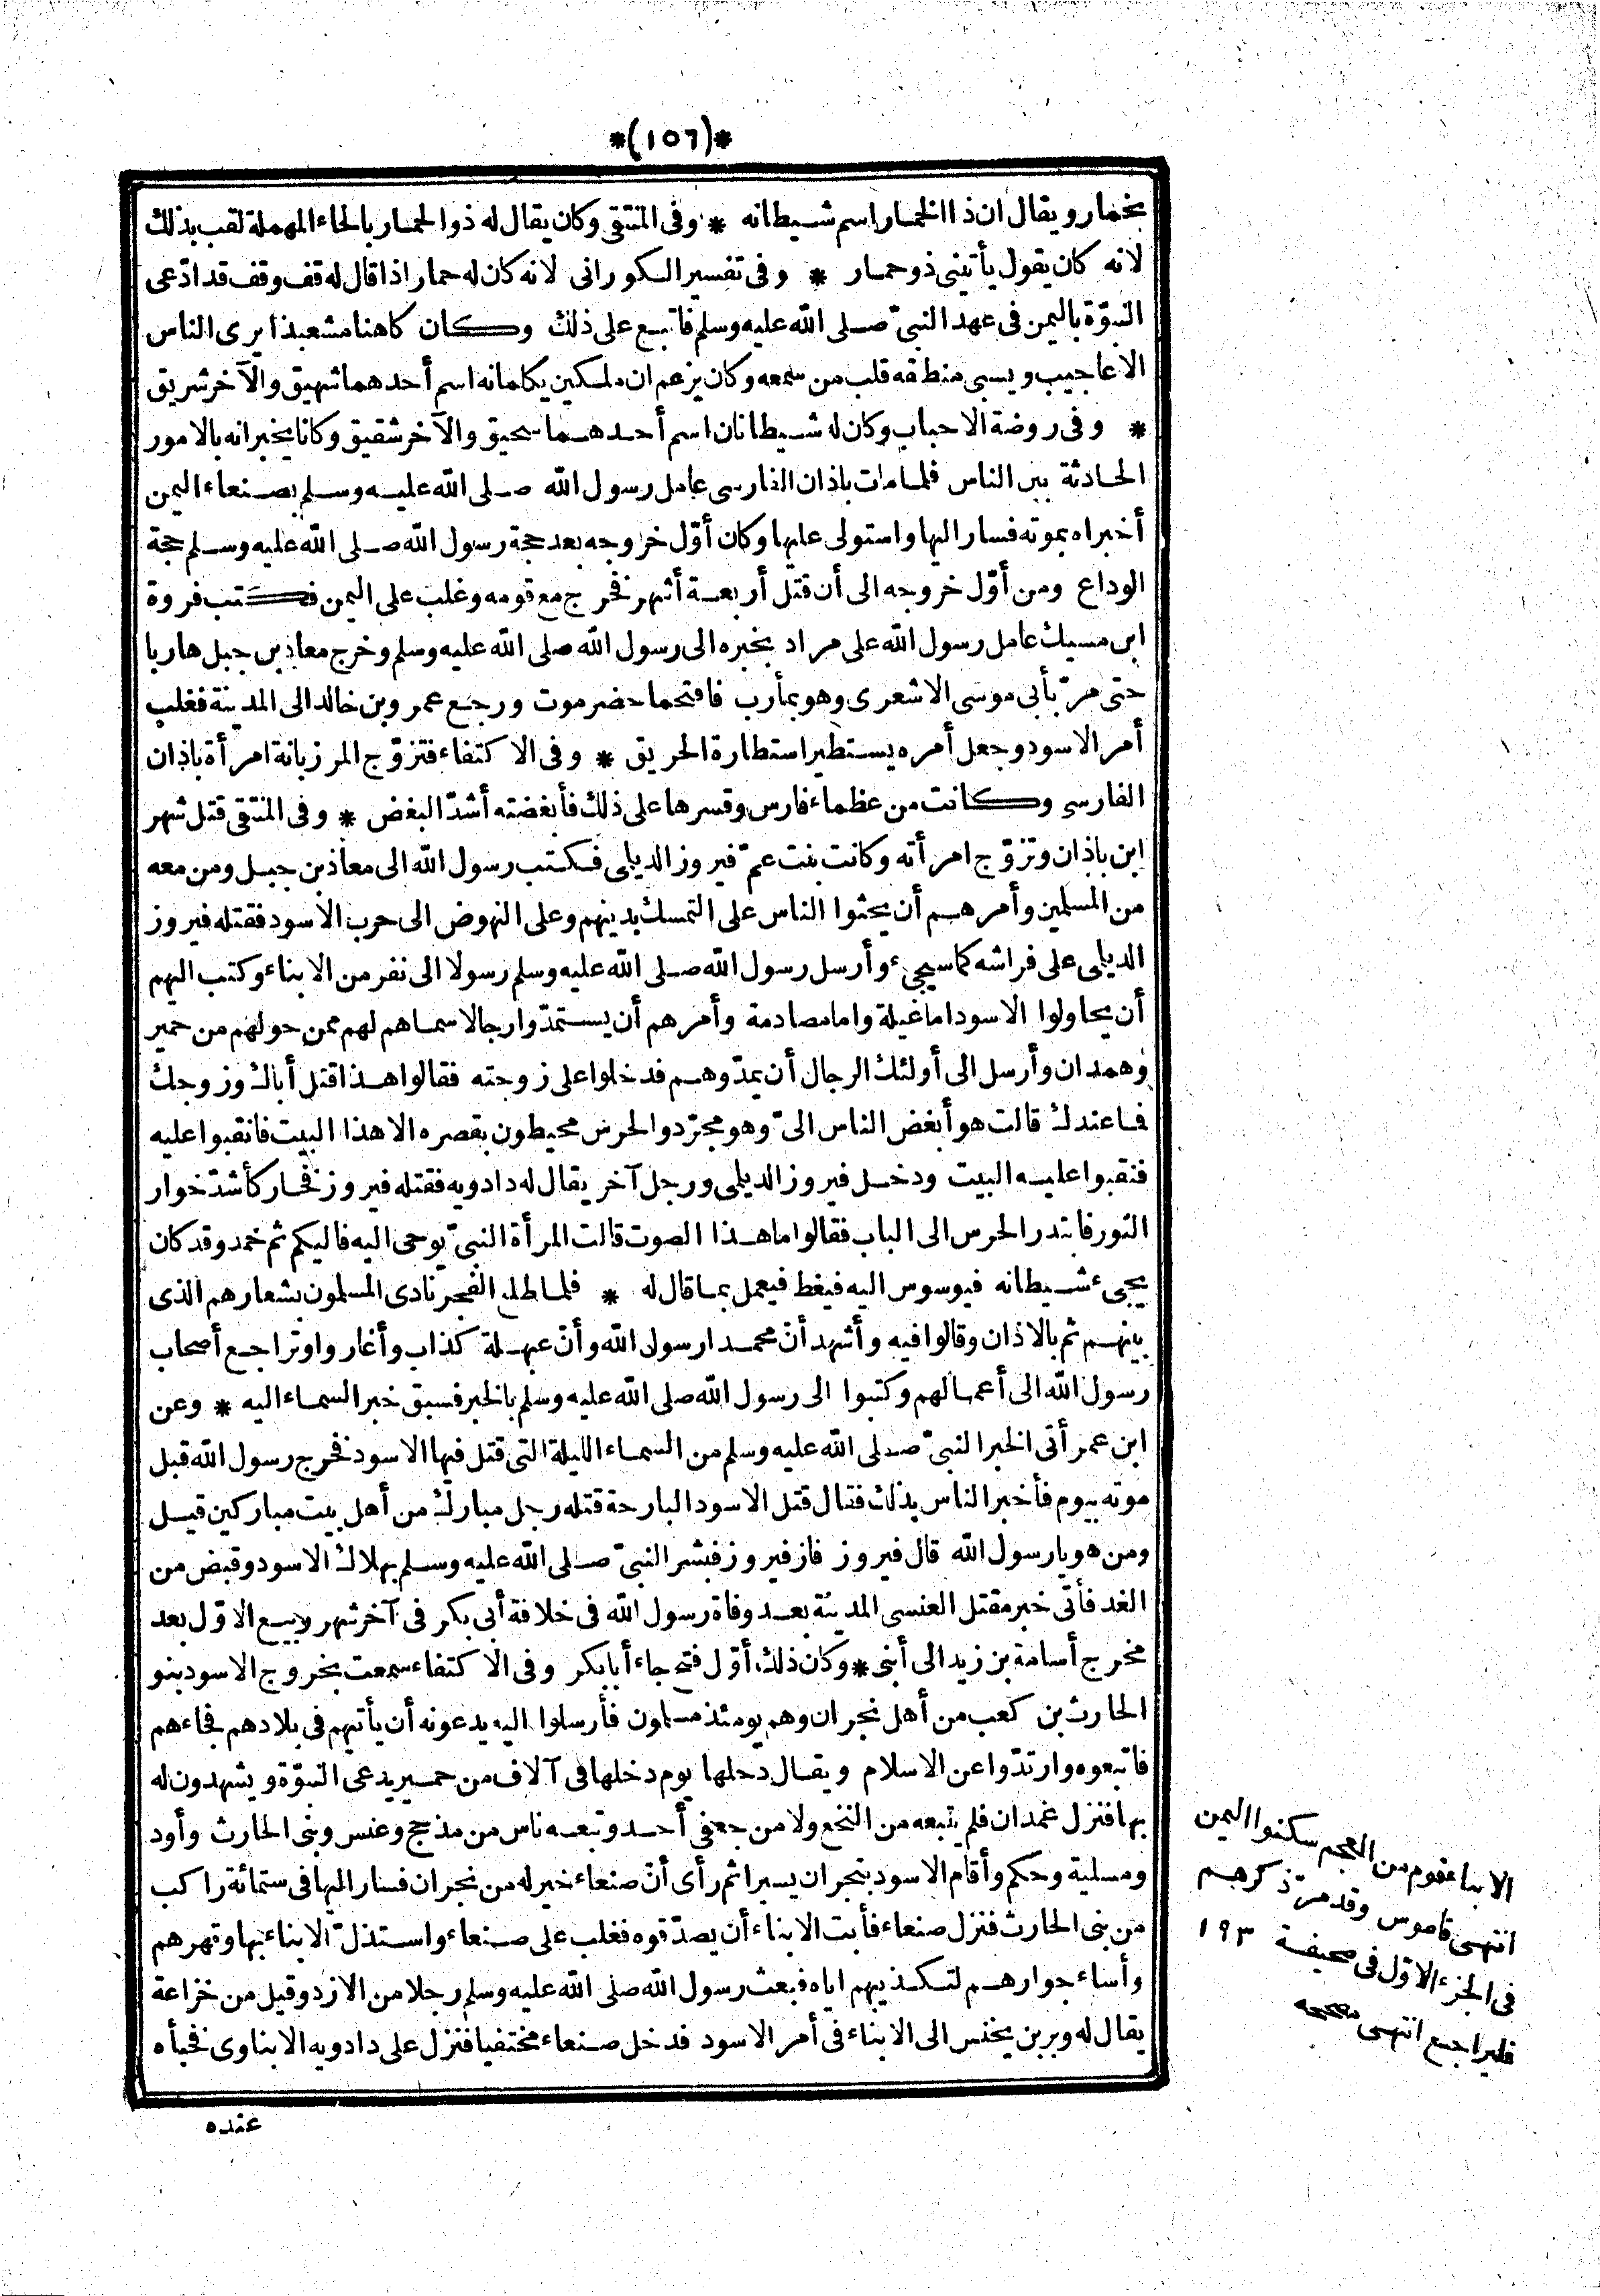 *(١٥٦)*
بخمار ويقال ان ذا الخمار اسم شيطانه * وفى المنتقى وكان يقال له ذوالحمار بالحاء المهملة لقب بذلك
لانه كان يقول يأتينى ذوحمار * وفى تفسير الكورانى لانه كان له حمار اذا قال له قف وقف قد ادّعى
النبوّة باليمن فى عهد النبىّ صلى الله عليه وسلم فاتبع على ذلك وكان كاهنا مشعبذا يرى الناس
الاعاجيب ويسبى منطقه قلب من سمعه وكان يزعم ان ملكين يكلمانه اسم أحدهما شهيق والآخر شريق
* وفى روضة الاحباب وكان له شيطانان اسم أحدهما سحيق والآخر شقيق وكانا يخبرانه بالامور
الحادثة بين الناس فلما مات باذان الفارسى عامل رسول الله صلى الله عليه وسلم بصنعاء اليمن
أخبراه بموته فسار اليها واستولى عليها وكان أوّل خروجه بعد حجة رسول الله صلى الله عليه وسلم حجة
الوداع ومن أوّل خروجه الى أن قتل أربعة أشهر فخرج مع قومه وغلب على اليمن فكتب فروة
ابن مسيك عامل رسول الله على مراد بخبره الى رسول الله صلى الله عليه وسلم وخرج معاذ بن جبل هاربا
حتى مرّ بأبى موسى الاشعرى وهو بمأرب فاقتحما حضرموت ورجع عمرو بن خالد الى المدينة فغلب
أمر الاسود وجعل أمره يستطير استطارة الحريق * وفى الاكتفاء فتزوّج المرزبانة امرأة باذان
الفارسى وكانت من عظماء فارس وقسرها على ذلك فأبغضته أشدّ البغض * وفى المنتقى قتل شهر
ابن باذان وتزوّج امرأته وكانت بنت عمّ فيروز الديلى فكتب رسول الله الى معاذ بن جبل ومن معه
من المسلمين وأمرهم أن يحثوا الناس على التمسك بدينهم وعلى النهوض الى حرب الاسود فقتله فيروز
الديلى على فراشه كما سيجىء وأرسل رسول الله صلى الله عليه وسلم رسولا الى نفر من الابناء وكتب اليهم
أن يحاولوا الاسود اما غيلة واما مصادمة وأمرهم أن يستمدّوا رجالا سماهم لهم ممن حولهم من حمير
وهمدان وأرسل الى أولئك الرجال أن يمدّوهم فدخلوا على زوجته فقالوا هذا قتل أباك وزوجك
فماعندك قالت هو أبغض الناس الىّ وهو مجرّد والحرس محيطون بقصره الا هذا البيت فانقبوا عليه
فنقبوا عليه البيت ودخل فيروز الديلى ورجل آخر يقال له دادويه فقتله فيروز فخار كأشدّ خوار
الثور فابتدر الحرس الى الباب فقالوا ما هذا الصوت قالت المرأة النبىّ يوحى اليه فاليكم ثم خمد وقد كان
يجىء شيطانه فيوسوس اليه فيغط فيعمل بما قال له * فلما طلع الفجر نادى المسلمون بشعارهم الذى
بينهم ثم بالاذان وقالوا فيه وأشهد أنّ محمدا رسول الله وأنّ عبهلة كذاب وأغاروا وتراجع أصحاب
رسول الله الى أعمالهم وكتبوا الى رسول الله صلى الله عليه وسلم بالخبر فسبق خبر السماء اليه * وعن
ابن عمر أتى الخبر النبىّ صلى الله عليه وسلم من السماء الليلة التى قتل فيها الاسود فخرج رسول الله قبل
موته بيوم فأخبر الناس بذلك فقال قتل الاسود البارحة قتله رجل مبارك من أهل بيت مباركين قيل
ومن هو يا رسول الله قال فيروز فاز فيروز فبشر النبىّ صلى الله عليه وسلم بهلاك الاسود وقبض من
الغد فأتى خبر مقتل العنسى المدينة بعد وفاة رسول الله فى خلافة أبى بكر فى آخر شهر ربيع الاوّل بعد
مخرج أسامة بن زيد الى أبنى * وكان ذلك أوّل فتح جاء أبا بكر وفى الاكتفاء سمعت بخروج الاسود بنو
الحارث بن كعب من أهل نجران وهم يومئذ مسلمون فأرسلوا اليه يدعونه أن يأتيهم فى بلادهم فجاءهم
فاتبعوه وارتدّوا عن الاسلام ويقال دخلها يوم دخلها فى آلاف من حمير يدعى النبوّة ويشهدون له
بها فنزل غمدان فلم يتبعه من النخع ولا من جعفى أحد وتبعه ناس من مذحج وعنس وبنى الحارث وأود
ومسلية وحكم وأقام الاسود بنجران يسيرا ثم رأى أنّ صنعاء خير له من نجران فسار اليها فى ستمائة راكب
من بنى الحارث فنزل صنعاء فأبت الابناء أن يصدّقوه فغلب على صنعاء واستذلّ الابناء بها وقهرهم
وأساء جوارهم لتكذيبهم اياه فبعث رسول الله صلى الله عليه وسلم رجلا من الازد وقيل من خزاعة
يقال له وبر بن يخنس الى الابناء فى أمر الاسود فدخل صنعاء مختفيا فنزل على دادويه الابناوى فخبأه
عنده
الابناء قوم من العجم سكنوا اليمن
انتهى قاموس وقد مرّ ذكرهم
فى الجزء الاوّل فى صحيفة ١٩٣
فليراجع انتهى مصححه